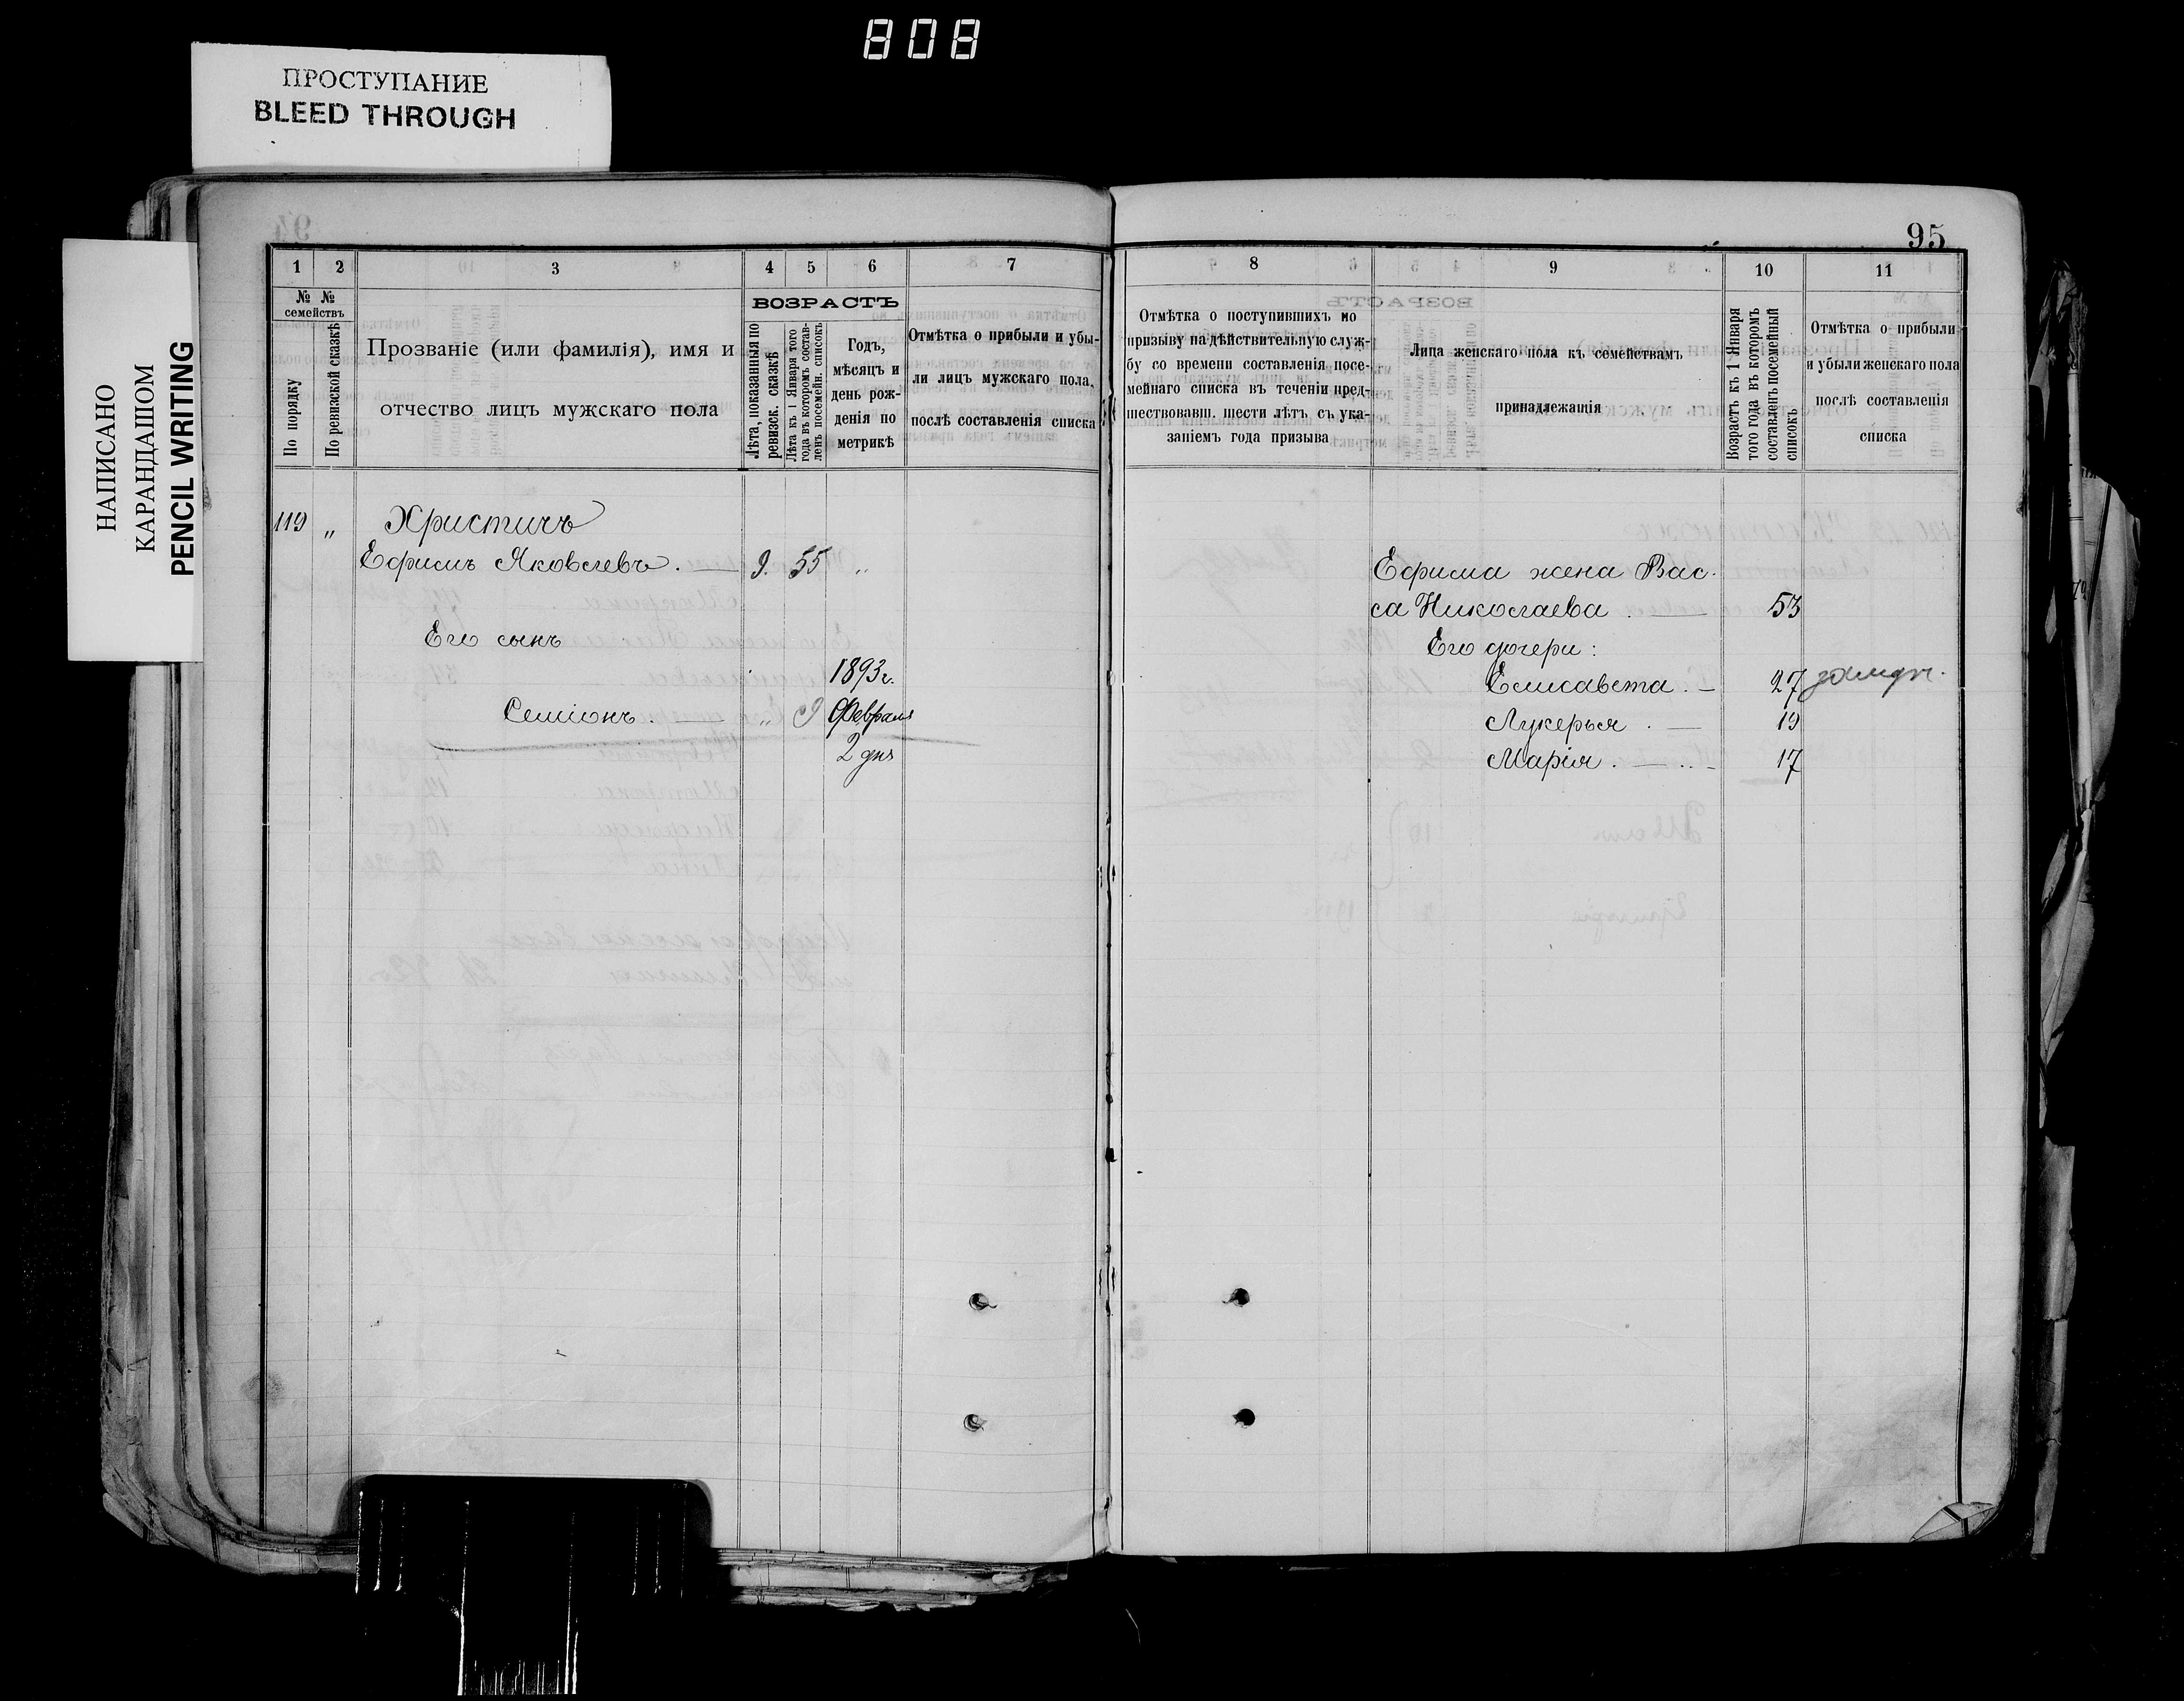 808
ПРОСТУПАНИЕ
BLEED THROUGH
НАПИСАНО
КАРАНДАШОМ
PENCIL WRITING
95
1 2 3 4 5 6 7
№ № семействъ
По порядку
По ревизской сказкѣ
Прозваніе (или фамилія), имя и
отчество лицъ мужскаго пола
ВОЗРАСТЪ
Лѣта, показанныя по
ревизск. сказкѣ
Лѣта къ 1 Января того
года въ которомъ состав-
ленъ посемейн. списокъ
Годъ,
мѣсяцъ и
день рож-
денія по
метрикѣ
Отмѣтка о прибыли и убы-
ли лицъ мужскаго пола,
послѣ составленія списка
119 „ Христичъ
Ефимъ Яковлевъ. — 9. 55 „
Его сынъ
1893 г.
Семіонъ. — „ 9 Февраля
2 дня
8 9 10 11
Отмѣтка о поступившихъ по
призыву на дѣйствительную служ-
бу со времени составленія посе-
мейнаго списка въ теченіи пред-
шествовавш. шести лѣтъ съ ука-
заніемъ года призыва
Лица женскаго пола къ семействамъ
принадлежащія
Возрастъ къ 1 Января
того года въ которомъ
составленъ посемейный
списокъ
Отмѣтка о прибыли
и убыли женскаго пола
послѣ составленія
списка
Ефима жена Вас-
са Николаева. — 53
Его дочери:
Елисавета. — 27
Лукерья. — 19
Марія. — 17